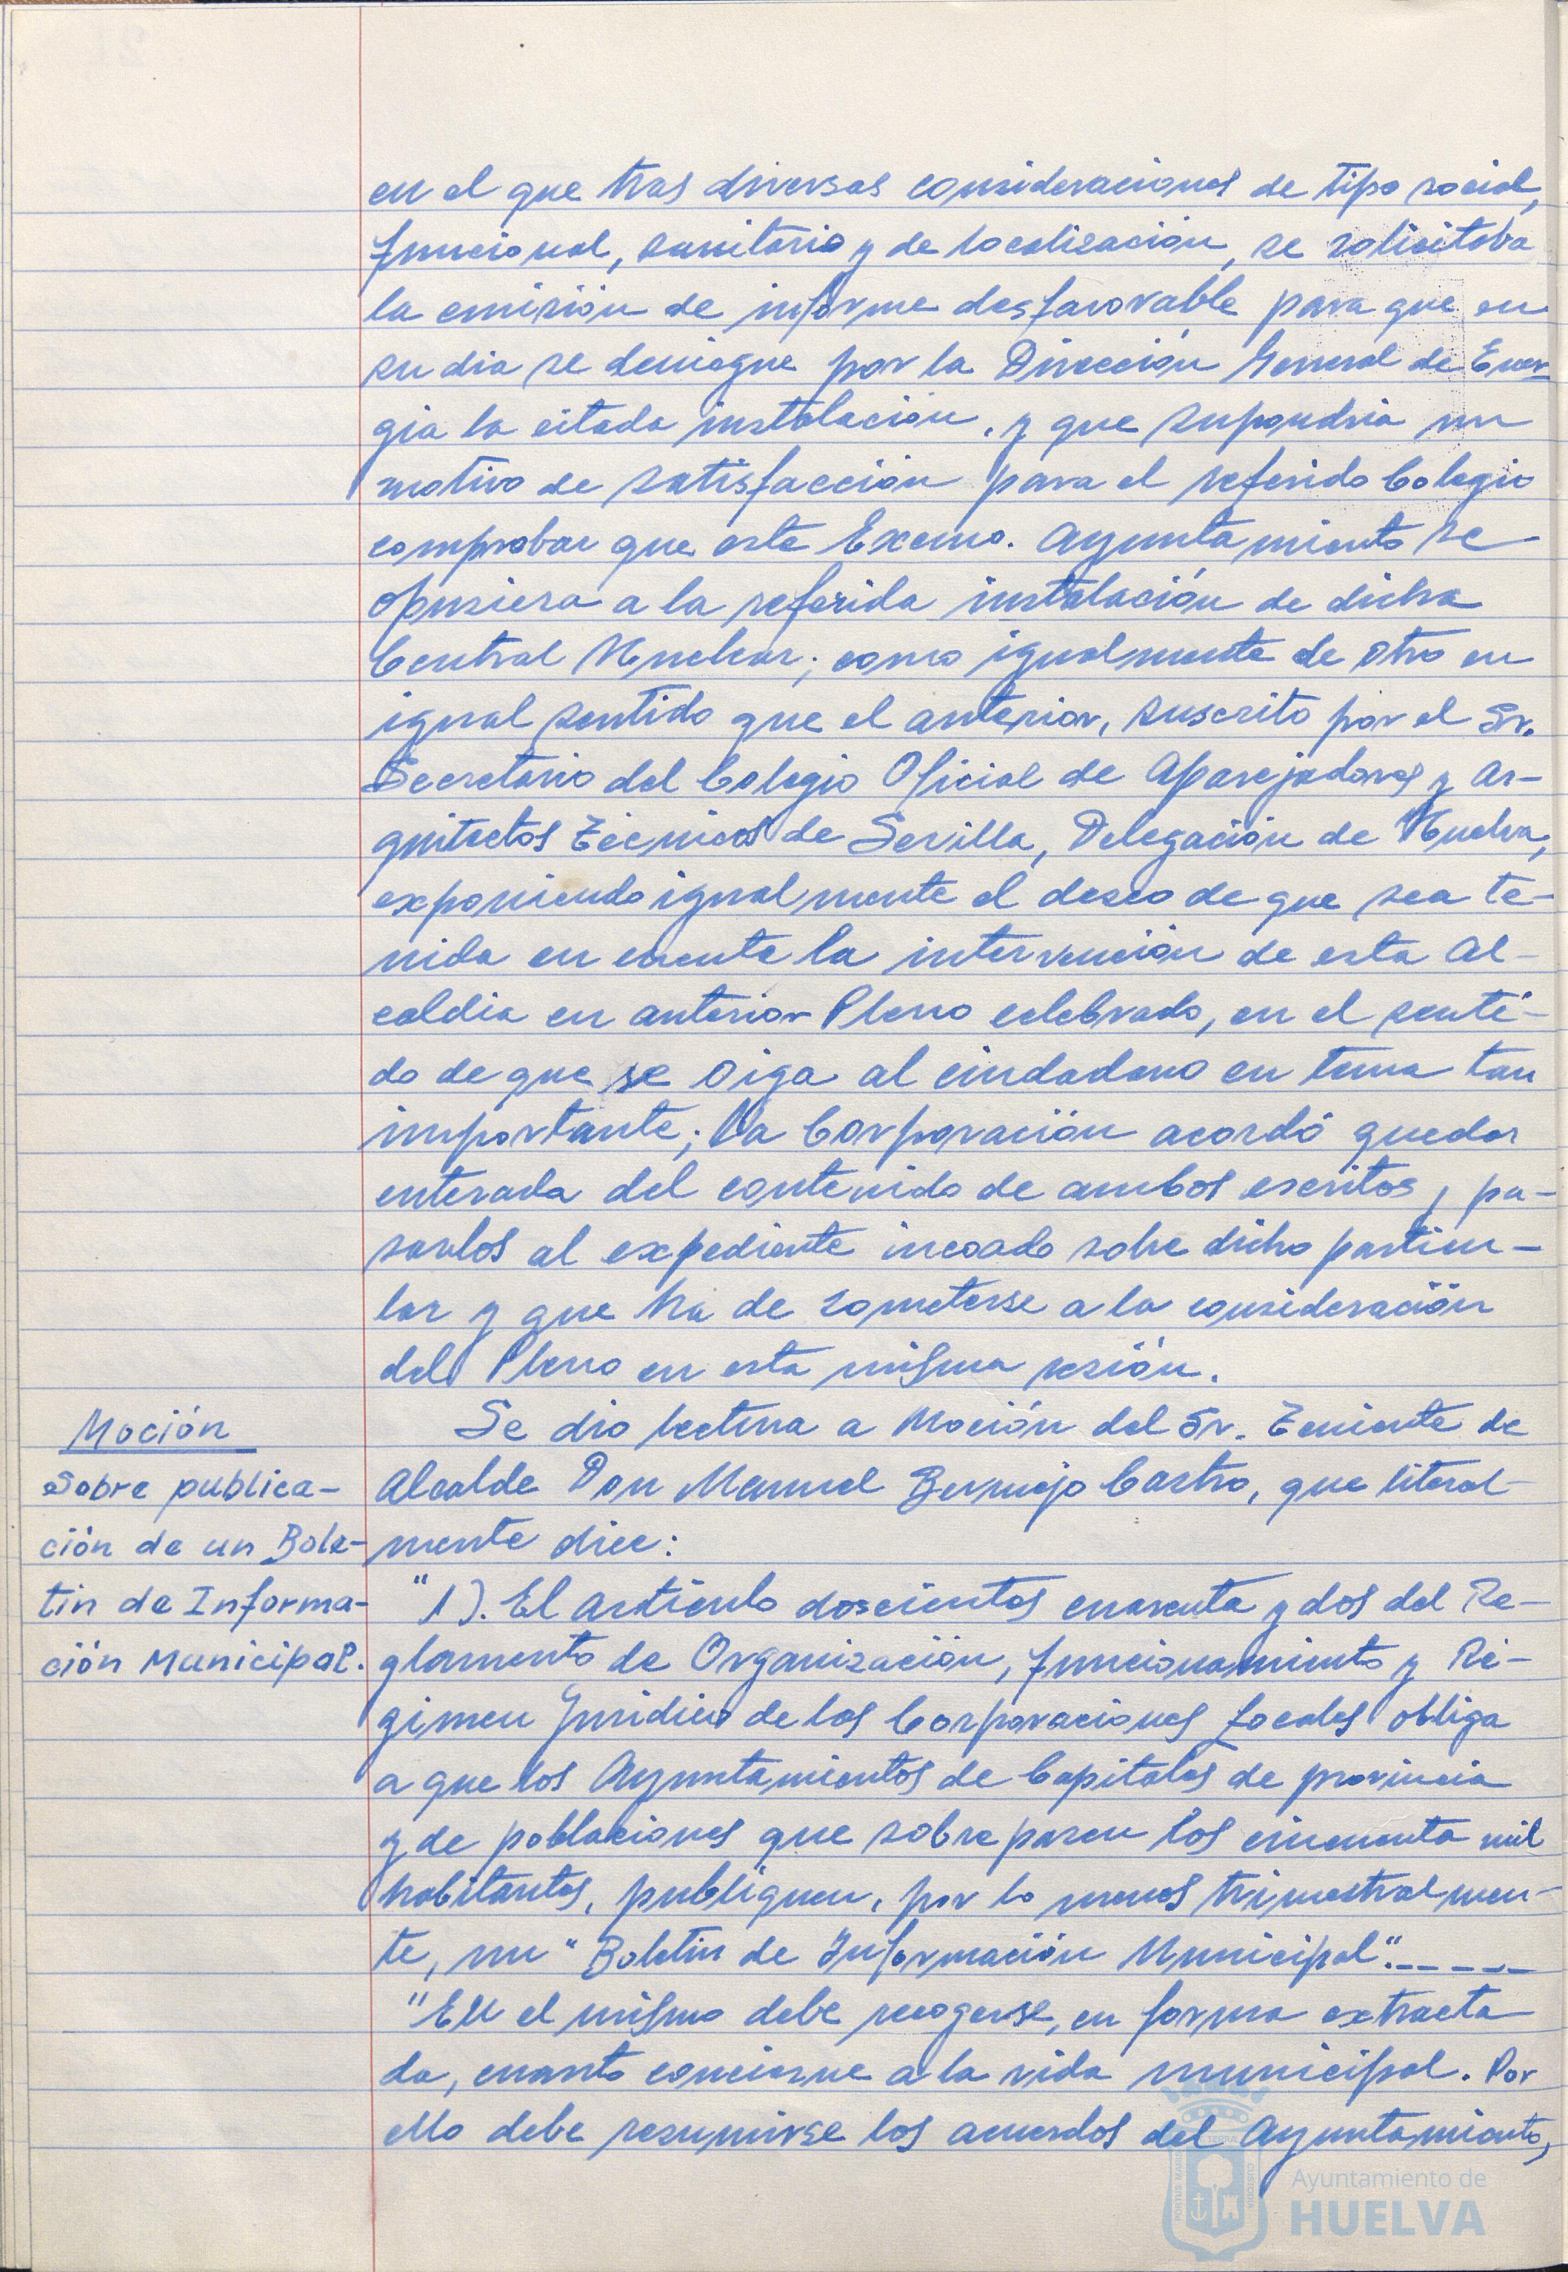 en el que tras diversas consideraciones de tipo social,
funcional, sanitario y de localización, se solicitaba
la emisión de informe desfavorable para que en
su dia se deniegue por la Dirección General de Ener-
gia la citada instalación, y que supondria un
motivo de satisfacción para el referido Colegio
comprobar que este Excmo. Ayuntamiento se
opusiera a la referida instalación de dicha
Central Nuclear; como igualmente de otro en
igual sentido que el anterior, suscrito por el Sr.
Secretario del Colegio Oficial de Aparejadores y Ar-
quitectos Técnicos de Sevilla, Delegación de Huelva,
exponiendo igualmente el deseo de que sea te-
nida en cuenta la intervención de esta Al-
caldia en anterior Pleno celebrado, en el senti-
do de que se oiga al ciudadano en tema tan
importante; La Corporación acordó quedar
enterada del contenido de ambos escritos, pa-
sarlos al expediente incoado sobre dicho particu-
lar y que ha de someterse a la consideración
del Pleno en esta misma sesión.
Moción
Sobre publica-
ción de un Bole-
tin de Informa-
ción Municipal.
Se dio lectura a Moción del Sr. Teniente de
Alcalde Don Manuel Bermejo Castro, que literal-
mente dice:
"1). El artículo doscientos cuarenta y dos del Re-
glamento de Organización, funcionamiento y Ré-
gimen Juridico de las Corporaciones Locales obliga
a que los Ayuntamientos de Capitales de provincia
y de poblaciones que sobrepasen los cincuenta mil
habitantes, publiquen, por lo menos trimestralmen-
te, un "Boletin de Información Municipal".------
"En el mismo debe recogerse, en forma extracta
da, cuanto concierne a la vida municipal. Por
ello debe resumirse los acuerdos del Ayuntamiento,
Ayuntamiento de
HUELVA